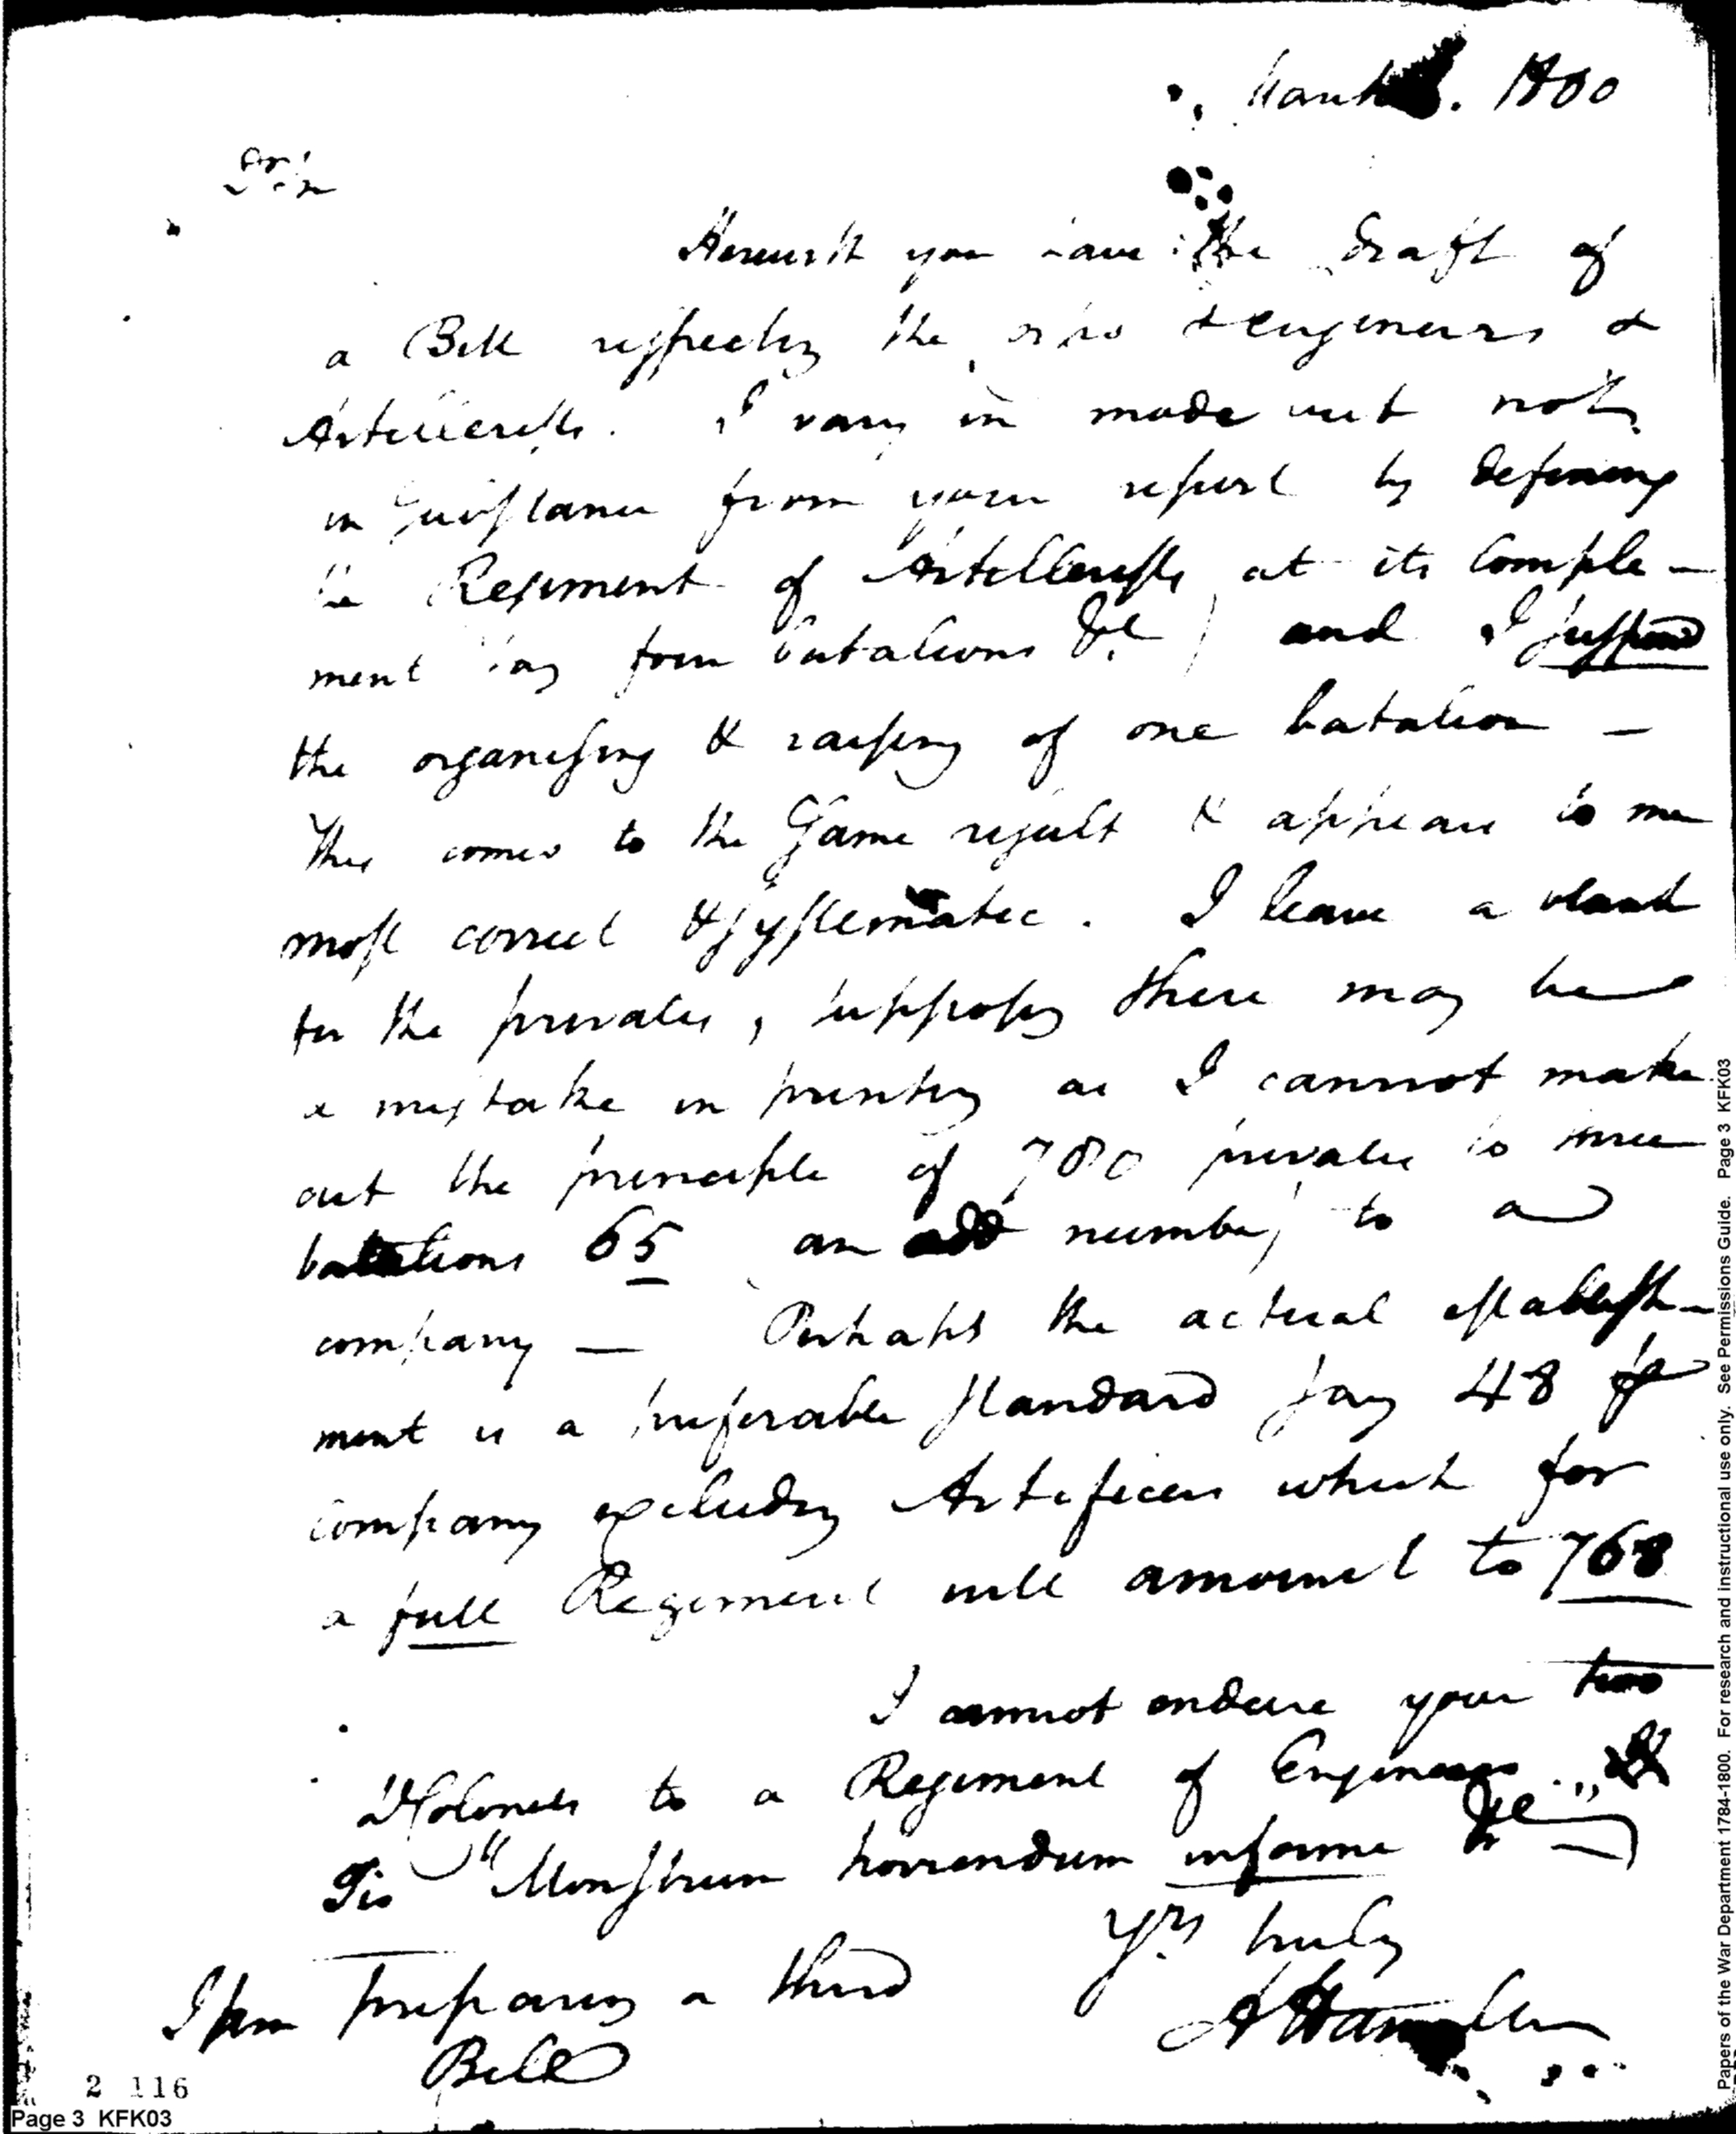 March . 1800
Sir
Herewith you have the draft of
a Bill respecting the & Engineers &
Artillerists. I vary in mode but not
in substance from your report by defining
the Regiment of Artillerists at its comple-
ment say four batalions &c ) and I suspend
the organising & raising of one batalion —
This comes to the same result & appears to me
most correct & systematic. I leave a blank
for the privates, supposing there may be
a mistake in printing as I cannot make
out the principle of 780 privates to three
batalions 65 an odd number to a
company — Perhaps the actual establish-
ment is a preferable standard say 48 pr
company excluding Artificers which for
a full Regiment will amount to 768
I cannot endure your two
Colonels to a Regiment of Engineers
Tis "Monstrum horrendum informe &c
Yrs truly
A Hamilton
I am preparing a third
Bill
2 116
Page 3 KFK03
Papers of the War Department 1784-1800. For research and instructional use only. See Permissions Guide. Page 3 KFK03